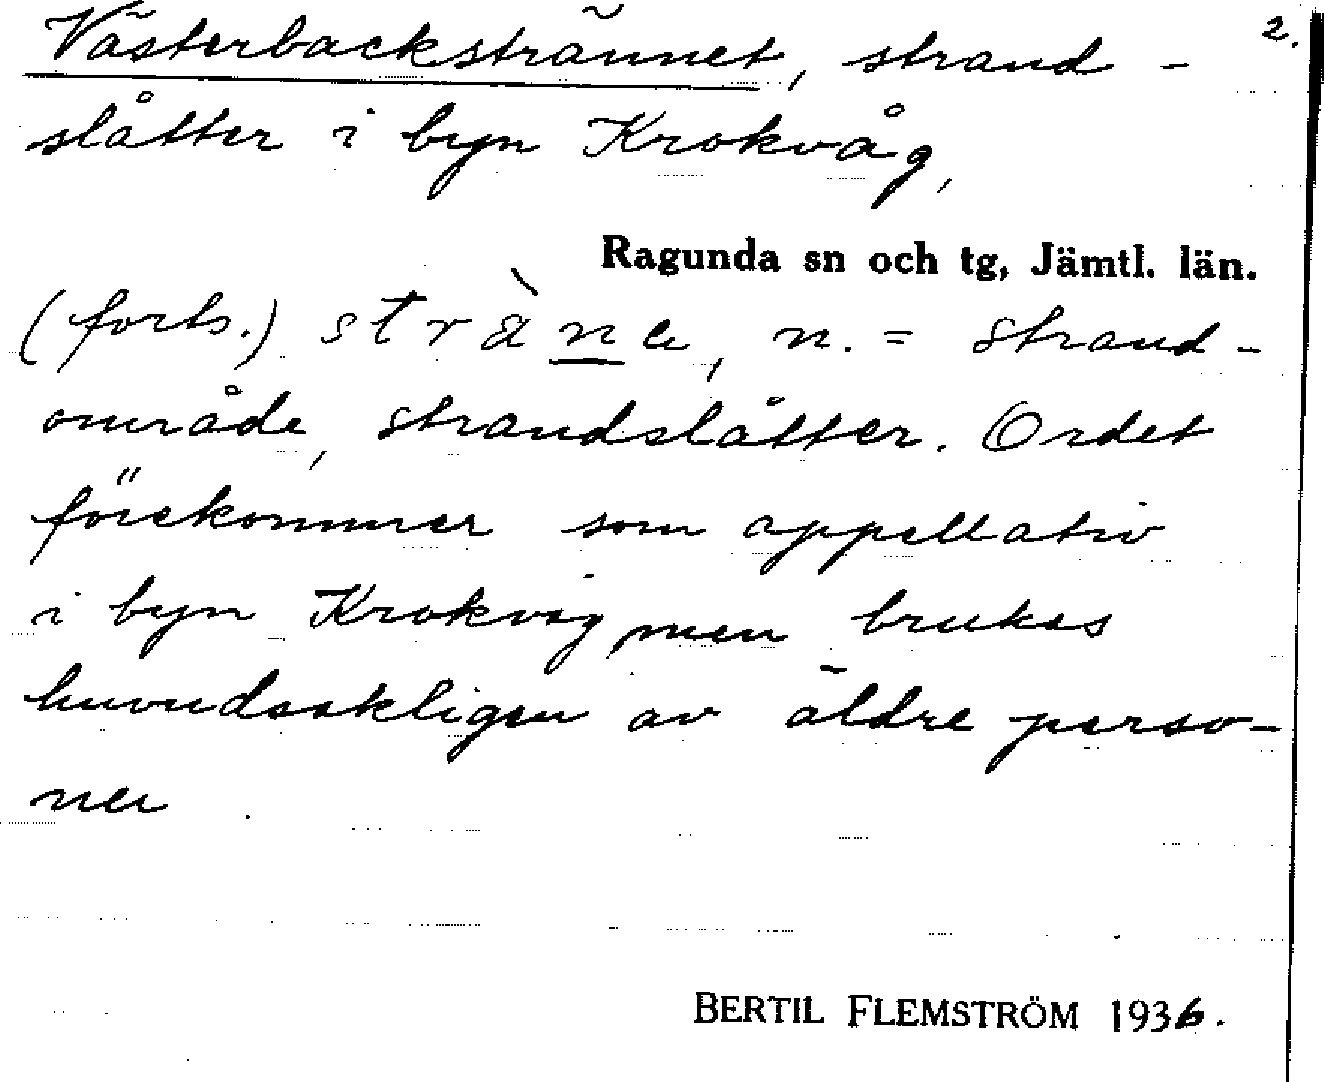 Västerbackstrännet, strand- 2.
slåtter i byn Krokvåg,
Ragunda sn och tg, Jämtl. län.
(forts.) stràne, n. = strand-
område, strandslåtter. Ordet
förekommer som appellativ
i byn Krokvåg, men brukas
huvudsakligen av äldre perso-
ner.
BERTIL FLEMSTRÖM 1936.